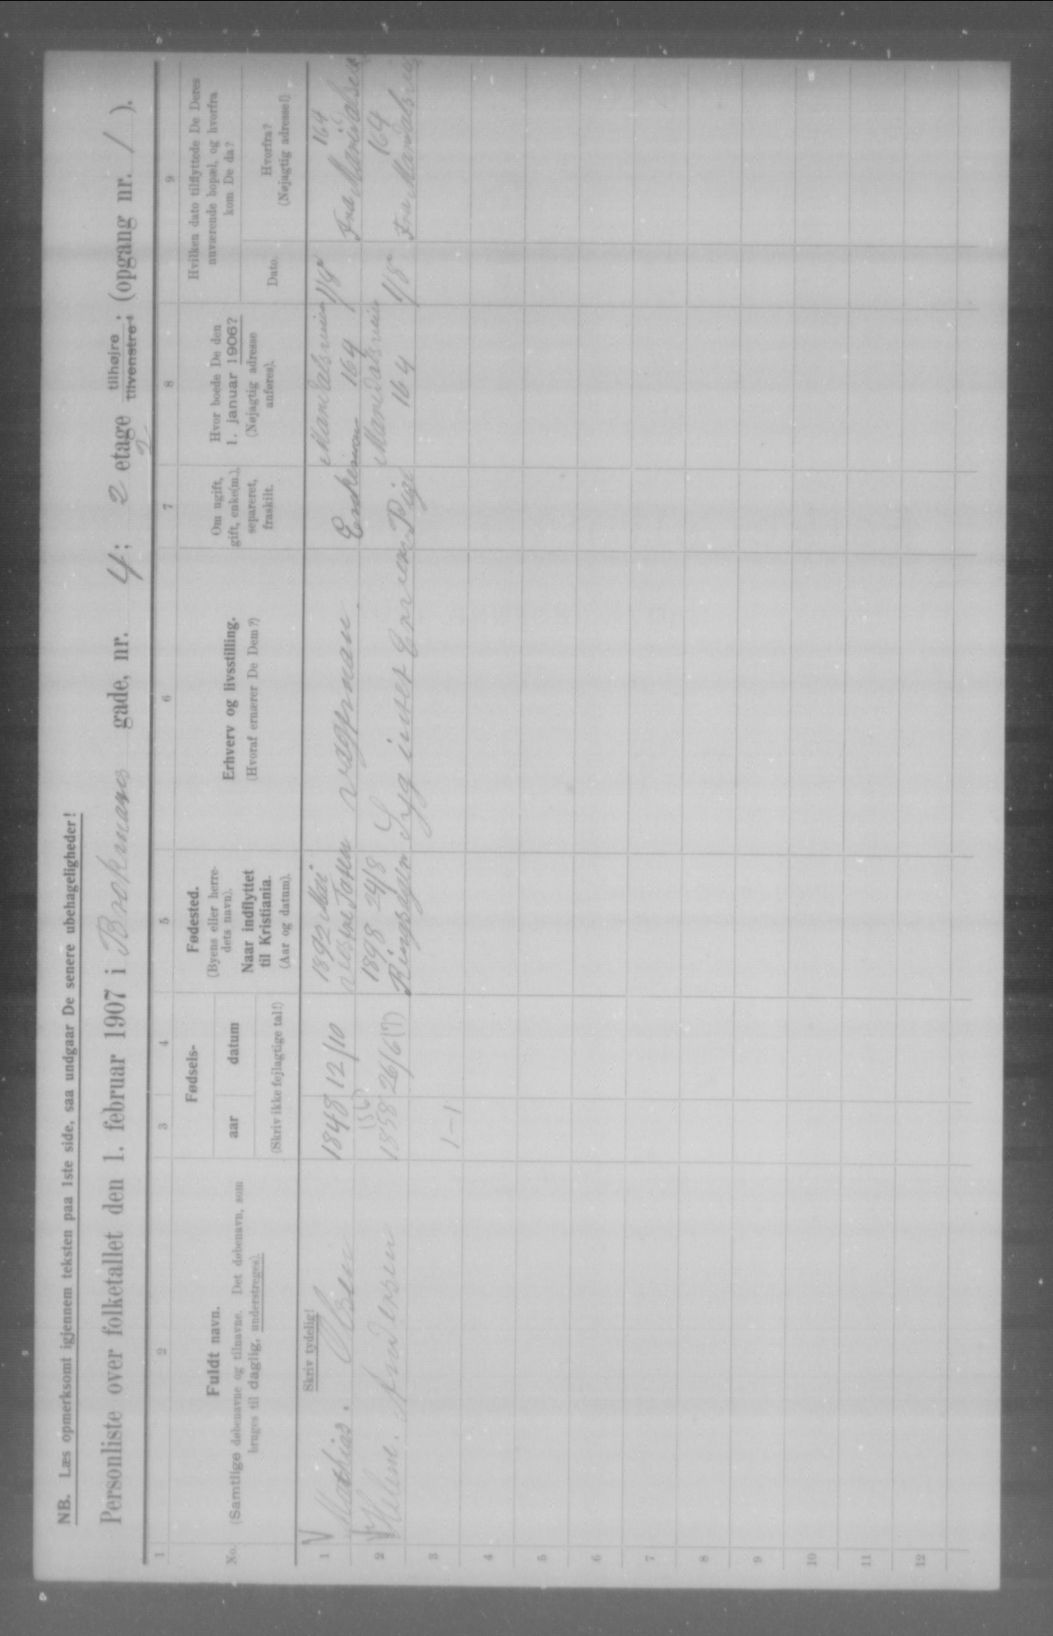 NB. Læs opmerksomt igjennem teksten paa 1ste side, saa undgaar De senere ubehageligheder!
Personliste over folketallet den 1. februar 1907 i Brokmans gade, nr. 4; 2 etage tilhøjre tilvenstre; (opgang nr. 1).
2
1 2 3 4 5 6 7 8 9
No.
Fuldt navn.
(Samtlige døbenavne og tilnavne. Det døbenavn, som
bruges til daglig, understreges).
Skriv tydelig!
Fødsels-
aar datum
(Skriv ikke fejlagtige tal!)
Fødested.
(Byens eller herre-
dets navn).
Naar indflyttet
til Kristiania.
(Aar og datum).
Erhverv og livsstilling.
(Hvoraf ernærer De Dem?)
Om ugift,
gift, enke(m.),
separeret,
fraskilt.
Hvor boede De den
1. januar 1906?
(Nøjagtig adresse
anføres).
Hvilken dato tilflyttede De Deres
nuværende bopæl, og hvorfra
kom De da?
Dato.
Hvorfra?
(Nøjagtig adresse!)
1 Mathias. Olsen 1848 12/10 1892 Mai
Vestre Toten Vagtman Enkeman Maridalsveien 164 1/8 Fra Maridalsvei 164
2 Helene. Andersen 1858 (56) 26/6 (7) 1898 24/8
Ringsaker Syg intet Erverv Pige Maridalsveien 164 1/8 Fra Maridalsvei 164
3 1-1
4
5
6
7
8
9
10
11
12